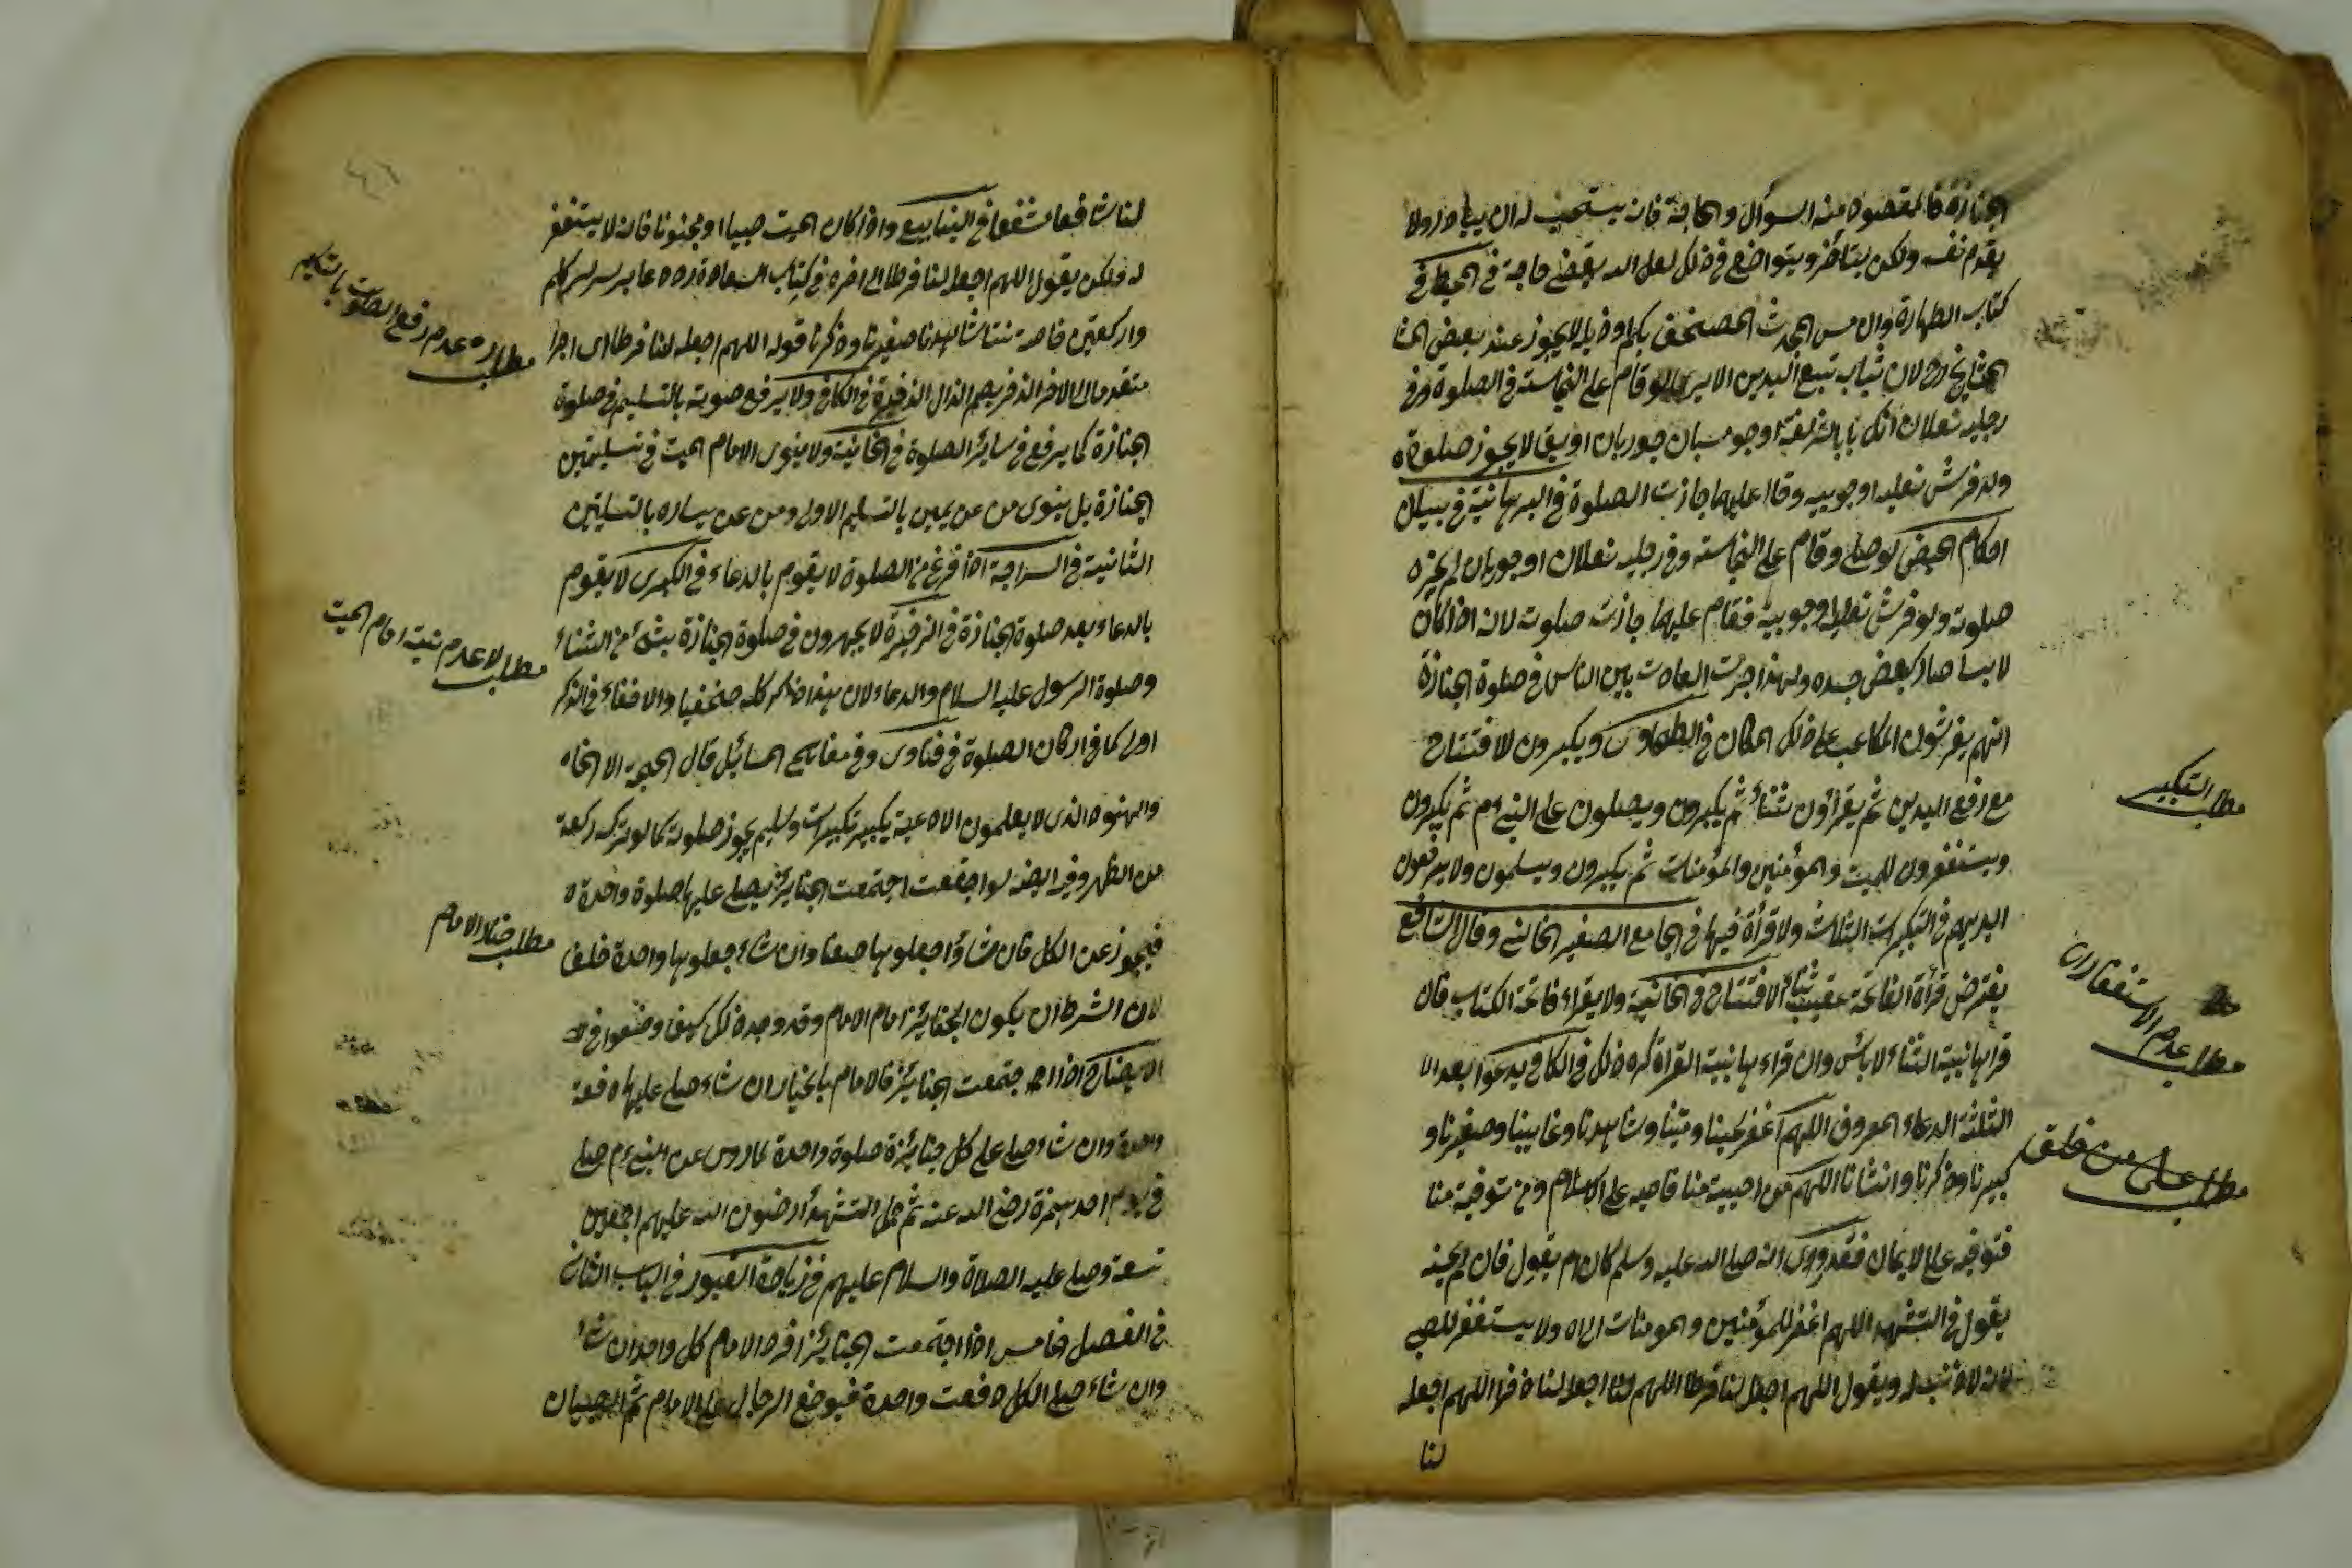 الجنازة فالمقصود منه السوأل والحاجة فانه يستحب له ان يبادر ولا
يقدم نفسه ولكن يتأخر ويتواضع في ذلك لعل الله يقضى حاجة في المحيط في
كتاب الطهارة وان مس المحدث المصحف بكمه او ذيله لا يجوز عند بعض المشا
لان ثياب تبع اليدين الا يرى لو قام على النجاسة في الصلوة وفي
رجليه نعلان او جوربان لا يجوز صلوة
ولو فرش نعليه او جوربيه وقام عليهما جازت الصلوة في البرهانية في بيان
احكام الحيض لو صلى وقام على النجاسة وفي رجليه نعلان او جوربان لم يجزه
صلوته ولو فرش نعليه وجوربيه فقام عليهما جازت صلوت لانه اذا كان
لابسا صار كبعض جسده ولهذا جرت العادت بين الناس في صلوة الجنازة
انهم يفرشون المكاعب على ذلك المكان في الطحاوى ويكبرون للافتتاح
مع رفع اليدين ثم يقرأون ثناء ثم يكبرون ويصلون على النبي ءم ثم يكبرون
ويستغفرون للميت والمؤمنين والمؤمنات ثم يكبرون ويسلمون ولا يرفعون
ايديهم في التكبيرات الثلاث ولا قرأة فيها في الجامع الصغير الخانى وقال الشافعى
يفترض قرأة الفاتحة عقيب ثناء الافتتاح في الخانية ولا يقراء فاتحة الكتاب فان
قرأها بنية الثناء لا بأس وان قراءها بنية القرأة كره ذلك في الكافي يدعوا بعد ال
الثلثة الدعاء المعروف اللهم اغفر لحينا وميتنا وشاهدنا وغايبنا وصغيرنا و
كبيرنا وذكرنا وانثانا اللهم من احييته منا فاحيه على الاسلام ومن توفيته منا
فتوفه على الايمان فقد روى انه صلى الله عليه وسلم كان ءم يقول فان لم يحسنه
يقول في التشهد اللهم اغفر للمؤمنين والمومنات الى اه ولا يستغفر للصبى
لانه لا ذنب له ويقول اللهم اجعل لنا فرطا اللهم اجعل لنا ذخرا اللهم اجعله
لنا
مطلب التكبير
مطلب عدم الاستغفار
مطلب على من خلق
لنا شافعا مشفعا في الينابيع واذا كان الميت صبيا او مجنونا فانه لا يستغفر
له ولكن يقول اللهم اجعله لنا فرطا الى اخره في كتاب
صغيرنا وذكرنا قوله اللهم اجعله لنا فرطا اى اجرا
متقدما في الكافي ولا يرفع صوته بالتسليم في صلوة
الجنازة كما يرفع في سائر الصلوة في الخانية ولا ينوى الامام الميت في تسليمتين
الجنازة بل ينوى من عن يمين بالتسليم الاولى ومن عن يساره بالتسليمتين
الثانية في السراجية اذا فرغ من الصلوة لا يقوم بالدعاء في الكبرى لا يقوم
بالدعاء بعد صلوة الجنازة في الذخيرة لا يجهرون في صلوة الجنازة بشئ من الثناء
وصلوة الرسول عليه السلام والدعاء لان هذا ذكر كله والاخفاء في الذكر
اولى كما في اركان الصلوة في فتاوى وفي مفاتيح المسائل قال الحجة
والهنود الذى لا يعلمون الادعية يكبر تكبيرات ويسلم يجوز صلوته كما لو ترك ركعة
من الظهر وفيه ايضا لو اجتمعت الجنايز يصلى عليها صلوة واحدة
فيجوز عن الكل فان شاؤا جعلوها صفا وان شاء جعلوها واحدة خلف
لان الشرط ان يكون الجنايز امام الامام وقد وجد ذلك كيف وضعوا في
الايضاح اذا اجتمعت الجنايز فالامام بالخيار ان شاء صلى عليها دفعة
واحدة وان شاء صلى على كل جنايزة صلوة واحدة لما روى عن النبي ءم صلى
في يوم احد حمزة رضى الله عنه ثم حمل الشهداء رضوان الله عليهم اجمعين
تسعة وصلى عليه الصلاة والسلام عليهم في زيارة القبور في الباب الثانى
في الفصل الخامس اذا اجتمعت الجنائز افرد الامام كل واحد ان شاء
وان شاء صلى الكل دفعت واحدة فيوضع الرجال على الامام ثم الصبيان
مطلب عدم رفع الصلوت بالتسليم
مطلب لا عدم نية امام الميت
مطلب الامام
٤٦